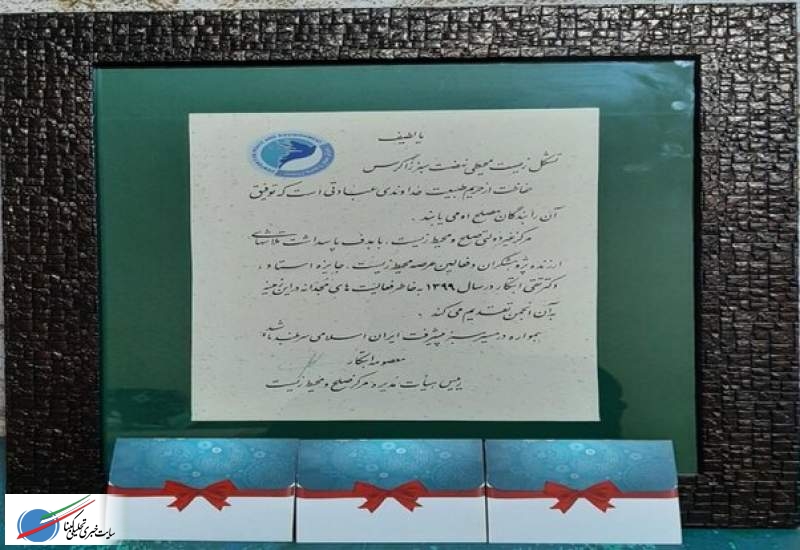 یا لطیف
تشکل زیست محیطی نهضت سبز زاگرس
حفاظت از حریم طبیعت خداوندی عبادتی است که توفیق
آن را بندگان مصلح او می یابند .
مرکز غیر دولتی صلح و محیط زیست ، با هدف پاسداشت تلاشهای
ارزنده پژوهشگران و فعالین عرصه محیط زیست ، جایزه استاد ،
دکتر تقی ابتکار در سال ۱۳۹۹ به خاطر فعالیت های مجدانه در این زمینه
به آن انجمن تقدیم می کند .
همواره در مسیر سبز پیشرفت ایران اسلامی سربلند باشید
معصومه ابتکار
رییس هیات مدیره مرکز صلح و محیط زیست
سایت خبری تحلیلی کبنا